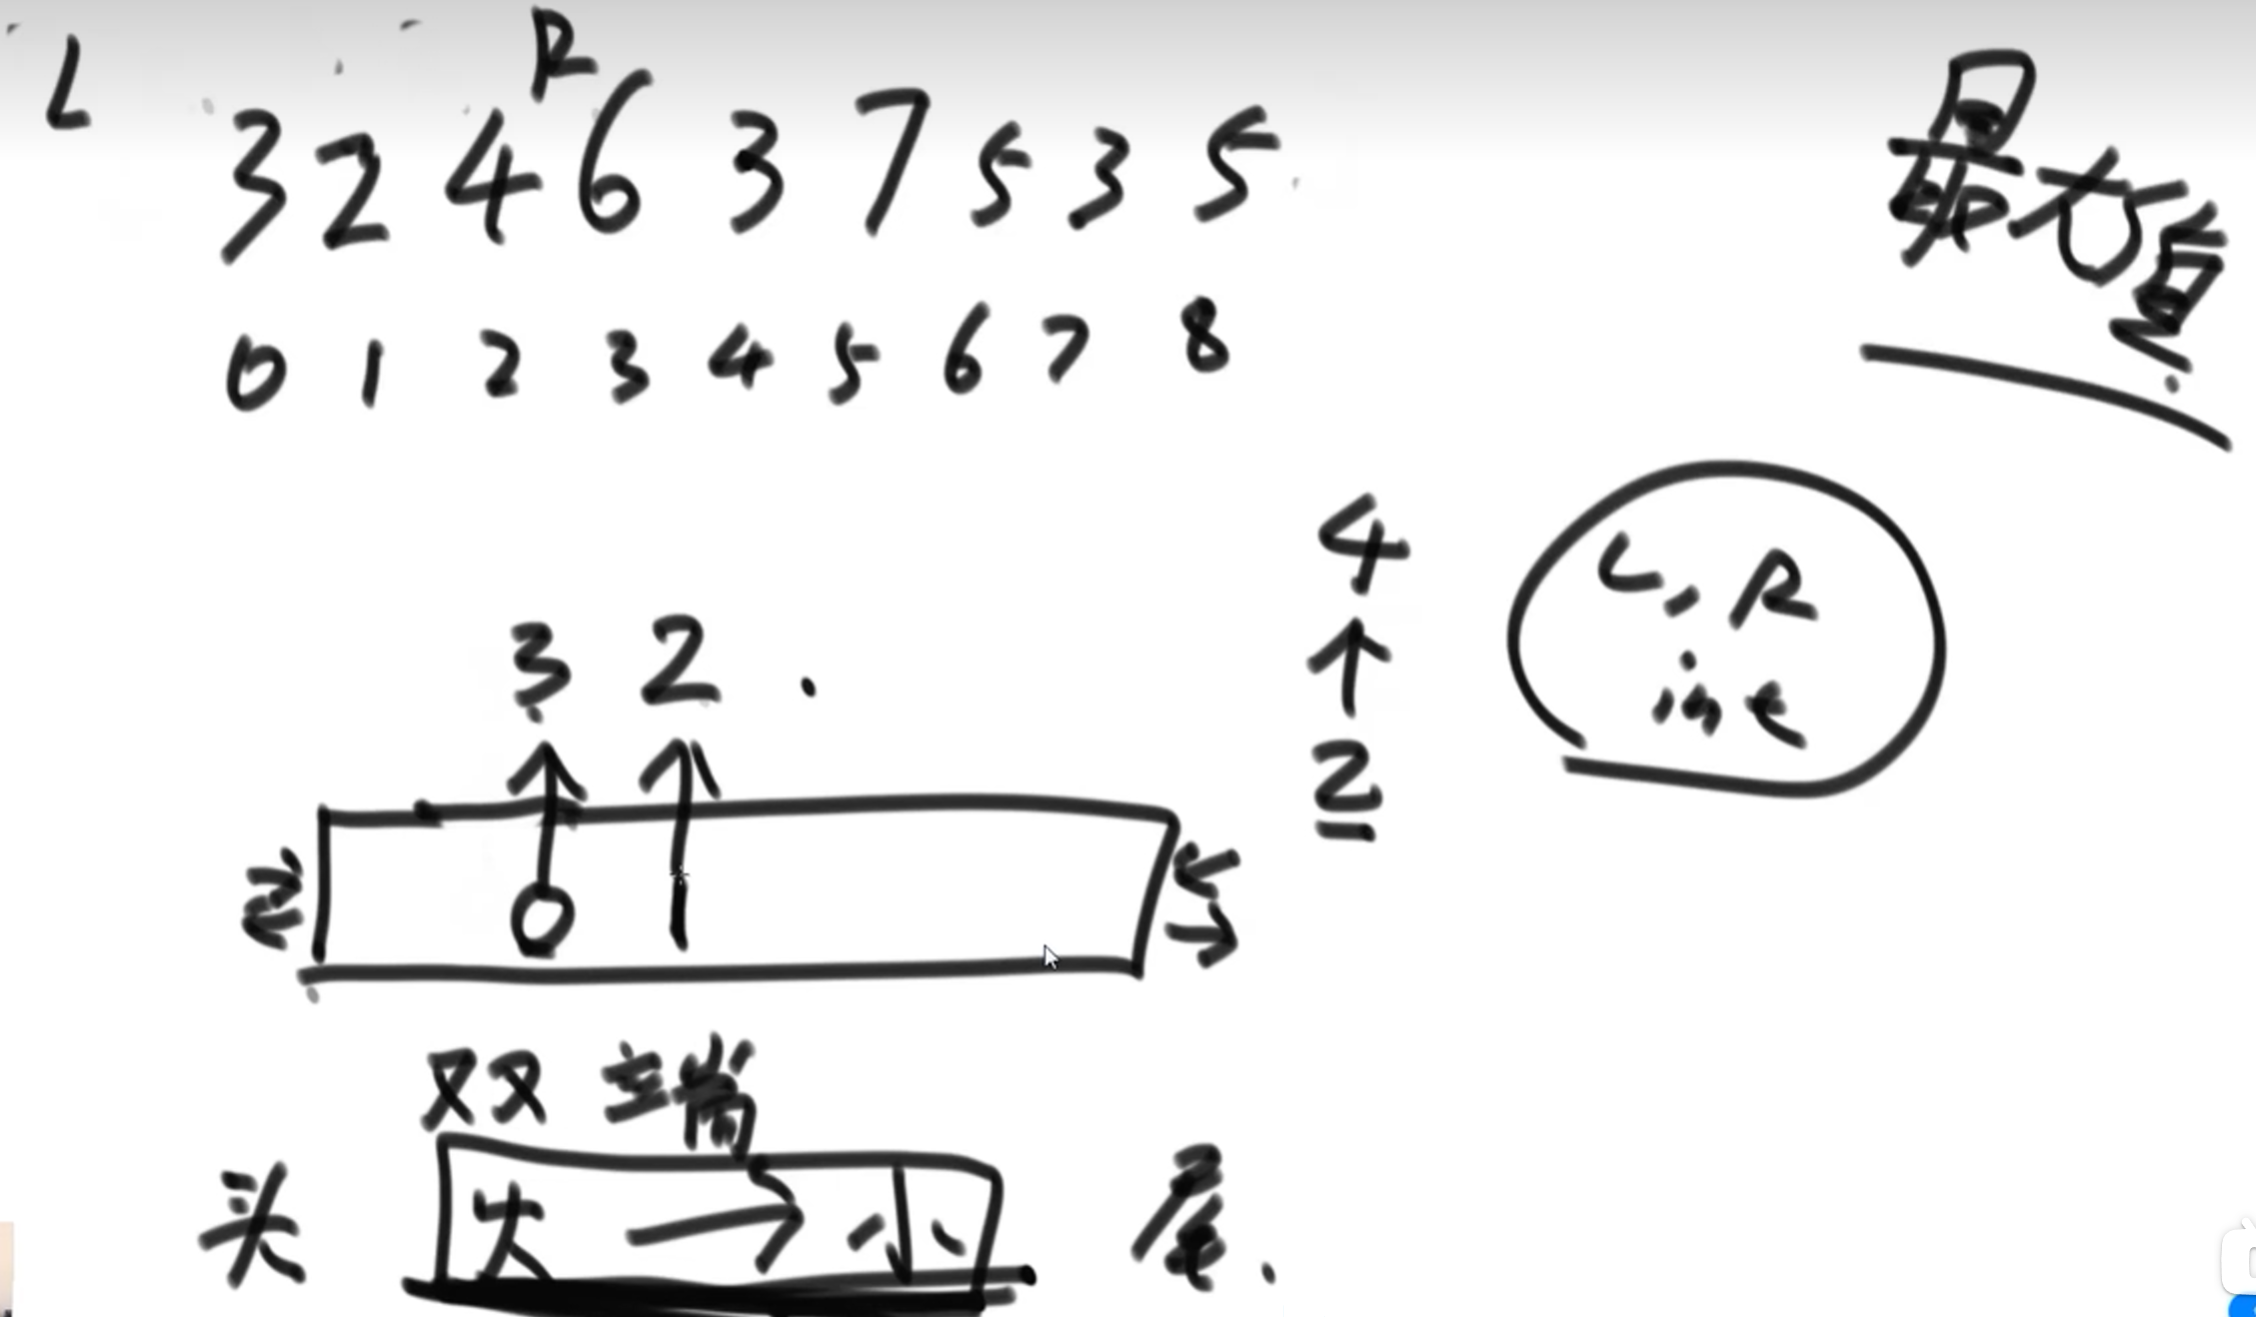 L R
3 2 4 6 3 7 5 3 5
0 1 2 3 4 5 6 7 8
最大值
4
2
L, R
int
3 2
0 1
双端
头 大 → 小 尾